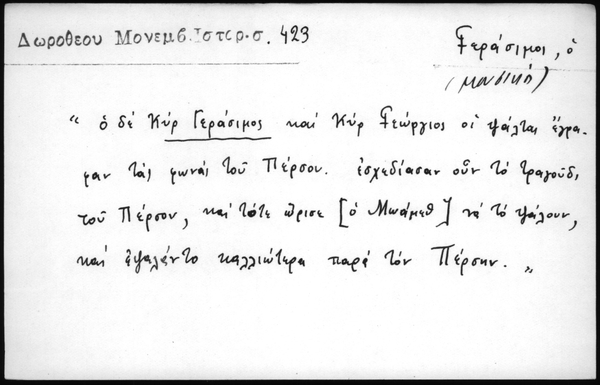 Δωροθεου Μονεμβ. Ιστορ. σ. 423
Γεράσιμος, ὁ
(μουσικός)
" ὁ δέ Κύρ Γεράσιμος καί Κύρ Γεώργιος οἱ ψάλται ἔγρα-
ψαν τάς φωνάς τοῦ Πέρσου. ἐσχεδίασαν οὖν τό τραγούδι
τοῦ Πέρσου, καί τότε ὥρισε [ὁ Μωάμεθ] νά τό ψάλουν,
καί ἐψαλάν το καλλιώτερα παρά τόν Πέρσην. "